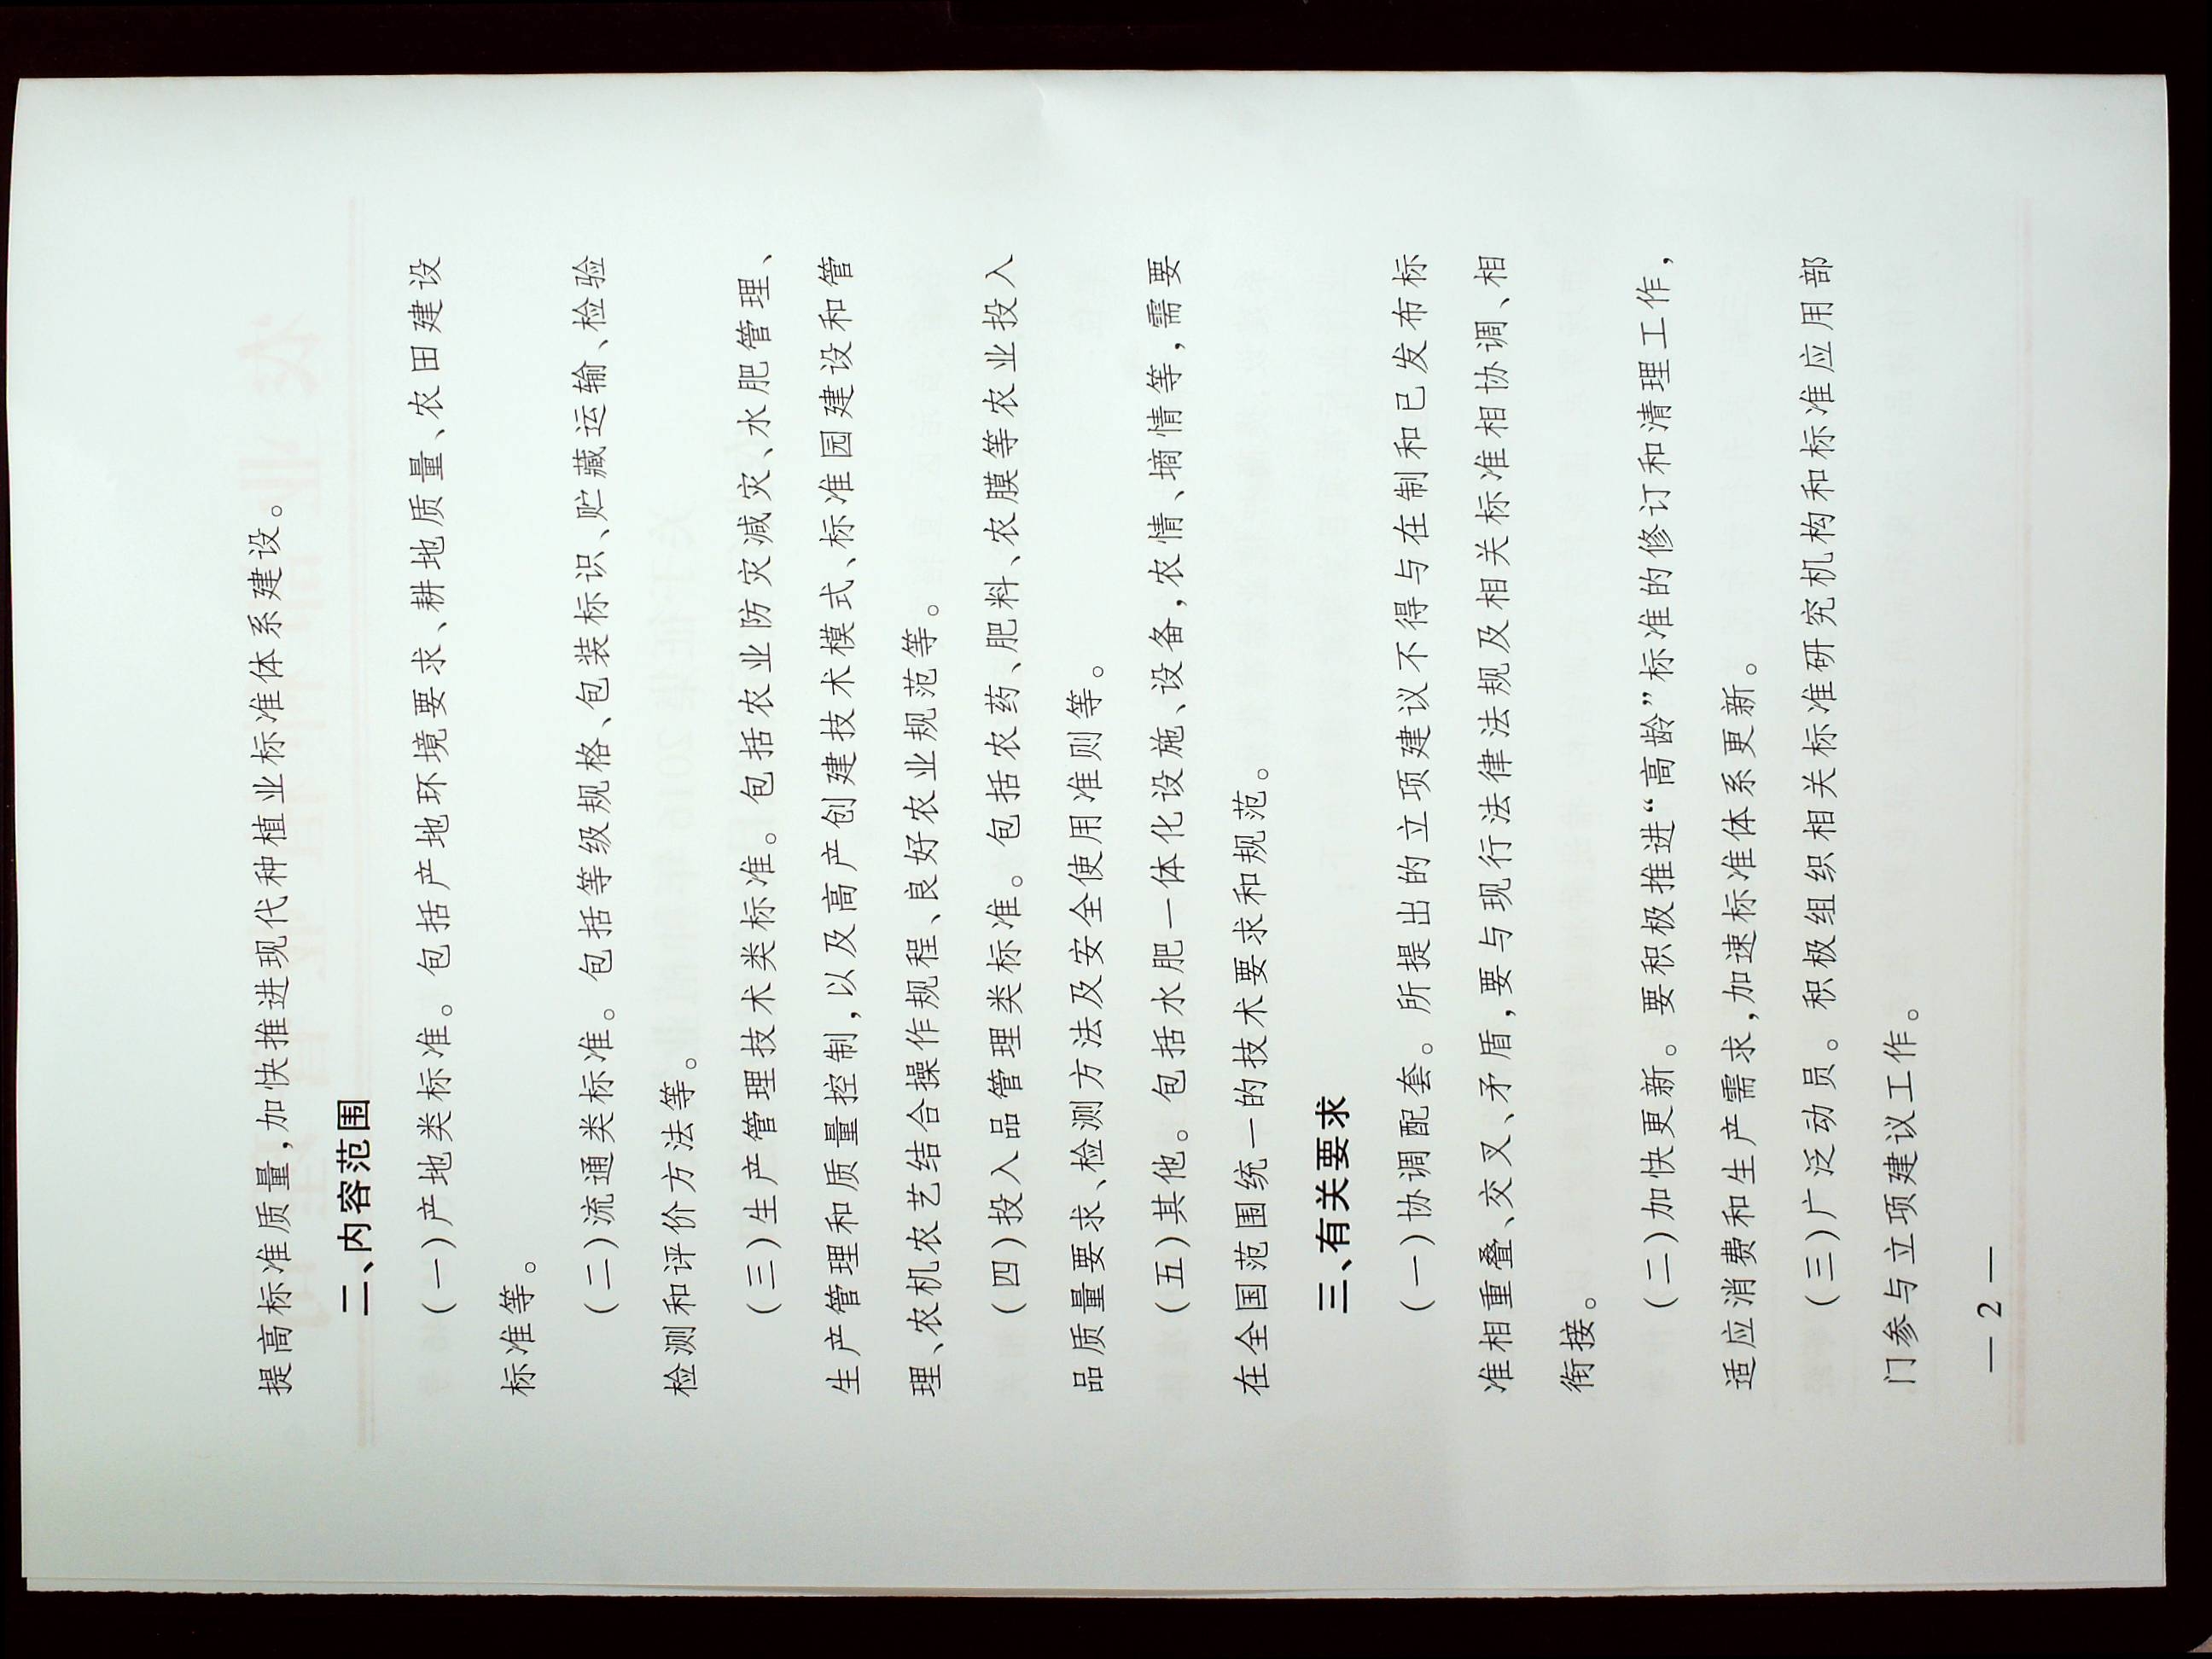 提高标准质量,加快推进现代种植业标准体系建设。
二、内容范围
(一)产地类标准。包括产地环境要求、耕地质量、农田建设
标准等。
(二)流通类标准。包括等级规格、包装标识、贮藏运输、检验
检测和评价方法等。
(三)生产管理技术类标准。包括农业防灾减灾、水肥管理、
生产管理和质量控制,以及高产创建技术模式、标准园建设和管
理、农机农艺结合操作规程、良好农业规范等。
(四)投入品管理类标准。包括农药、肥料、农膜等农业投入
品质量要求、检测方法及安全使用准则等。
(五)其他。包括水肥一体化设施、设备,农情、墒情等,需要
在全国范围统一的技术要求和规范。
三、有关要求
(一)协调配套。所提出的立项建议不得与在制和已发布标
准相重叠、交叉、矛盾,要与现行法律法规及相关标准相协调、相
衔接。
(二)加快更新。要积极推进“高龄”标准的修订和清理工作,
适应消费和生产需求,加速标准体系更新。
(三)广泛动员。积极组织相关标准研究机构和标准应用部
门参与立项建议工作。
— 2 —